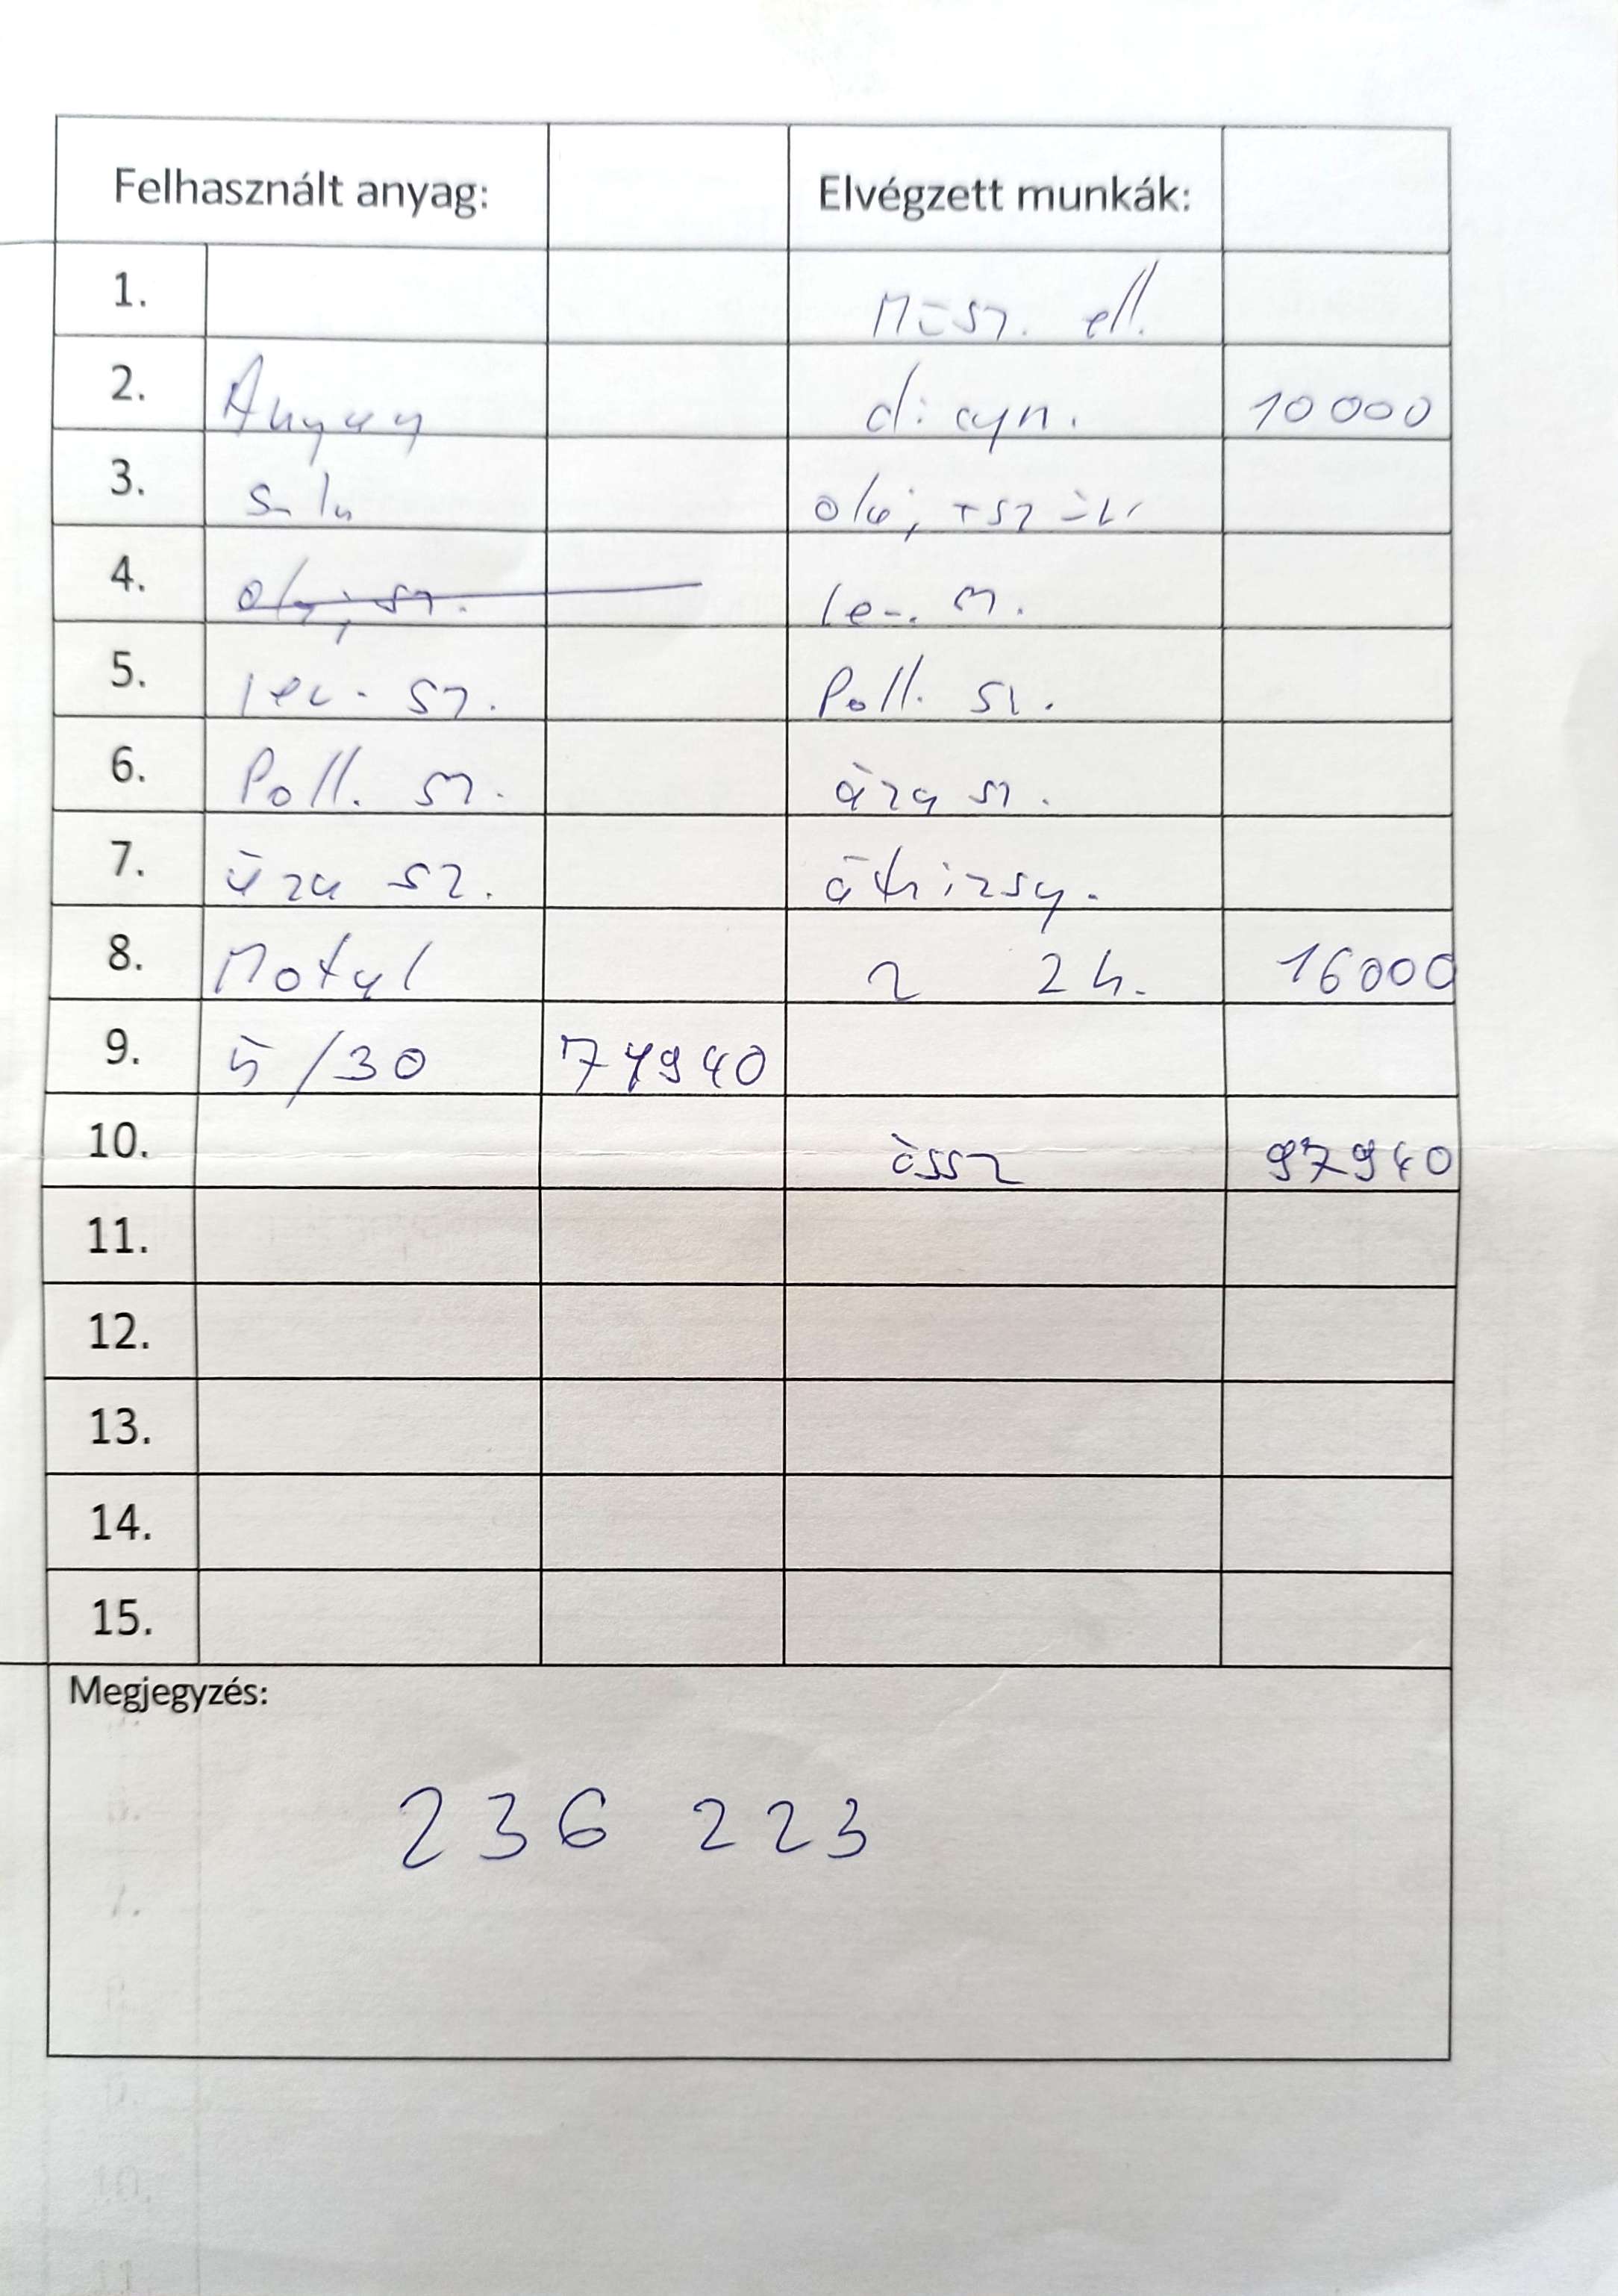 Felhasznált anyag: Elvégzett munkák:
1. Műsz. ell.
2. Anyag diagn. 10000
3. olaj + szűr
4. olaj sz. lev. sz.
5. lev. sz. Poll. sz.
6. Poll. sz. üza sz.
7. üza sz. átvizsg.
8. Motul 2h. 16000
9. 5/30 71940
10. össz 97940
11.
12.
13.
14.
15.
Megjegyzés:
236 223